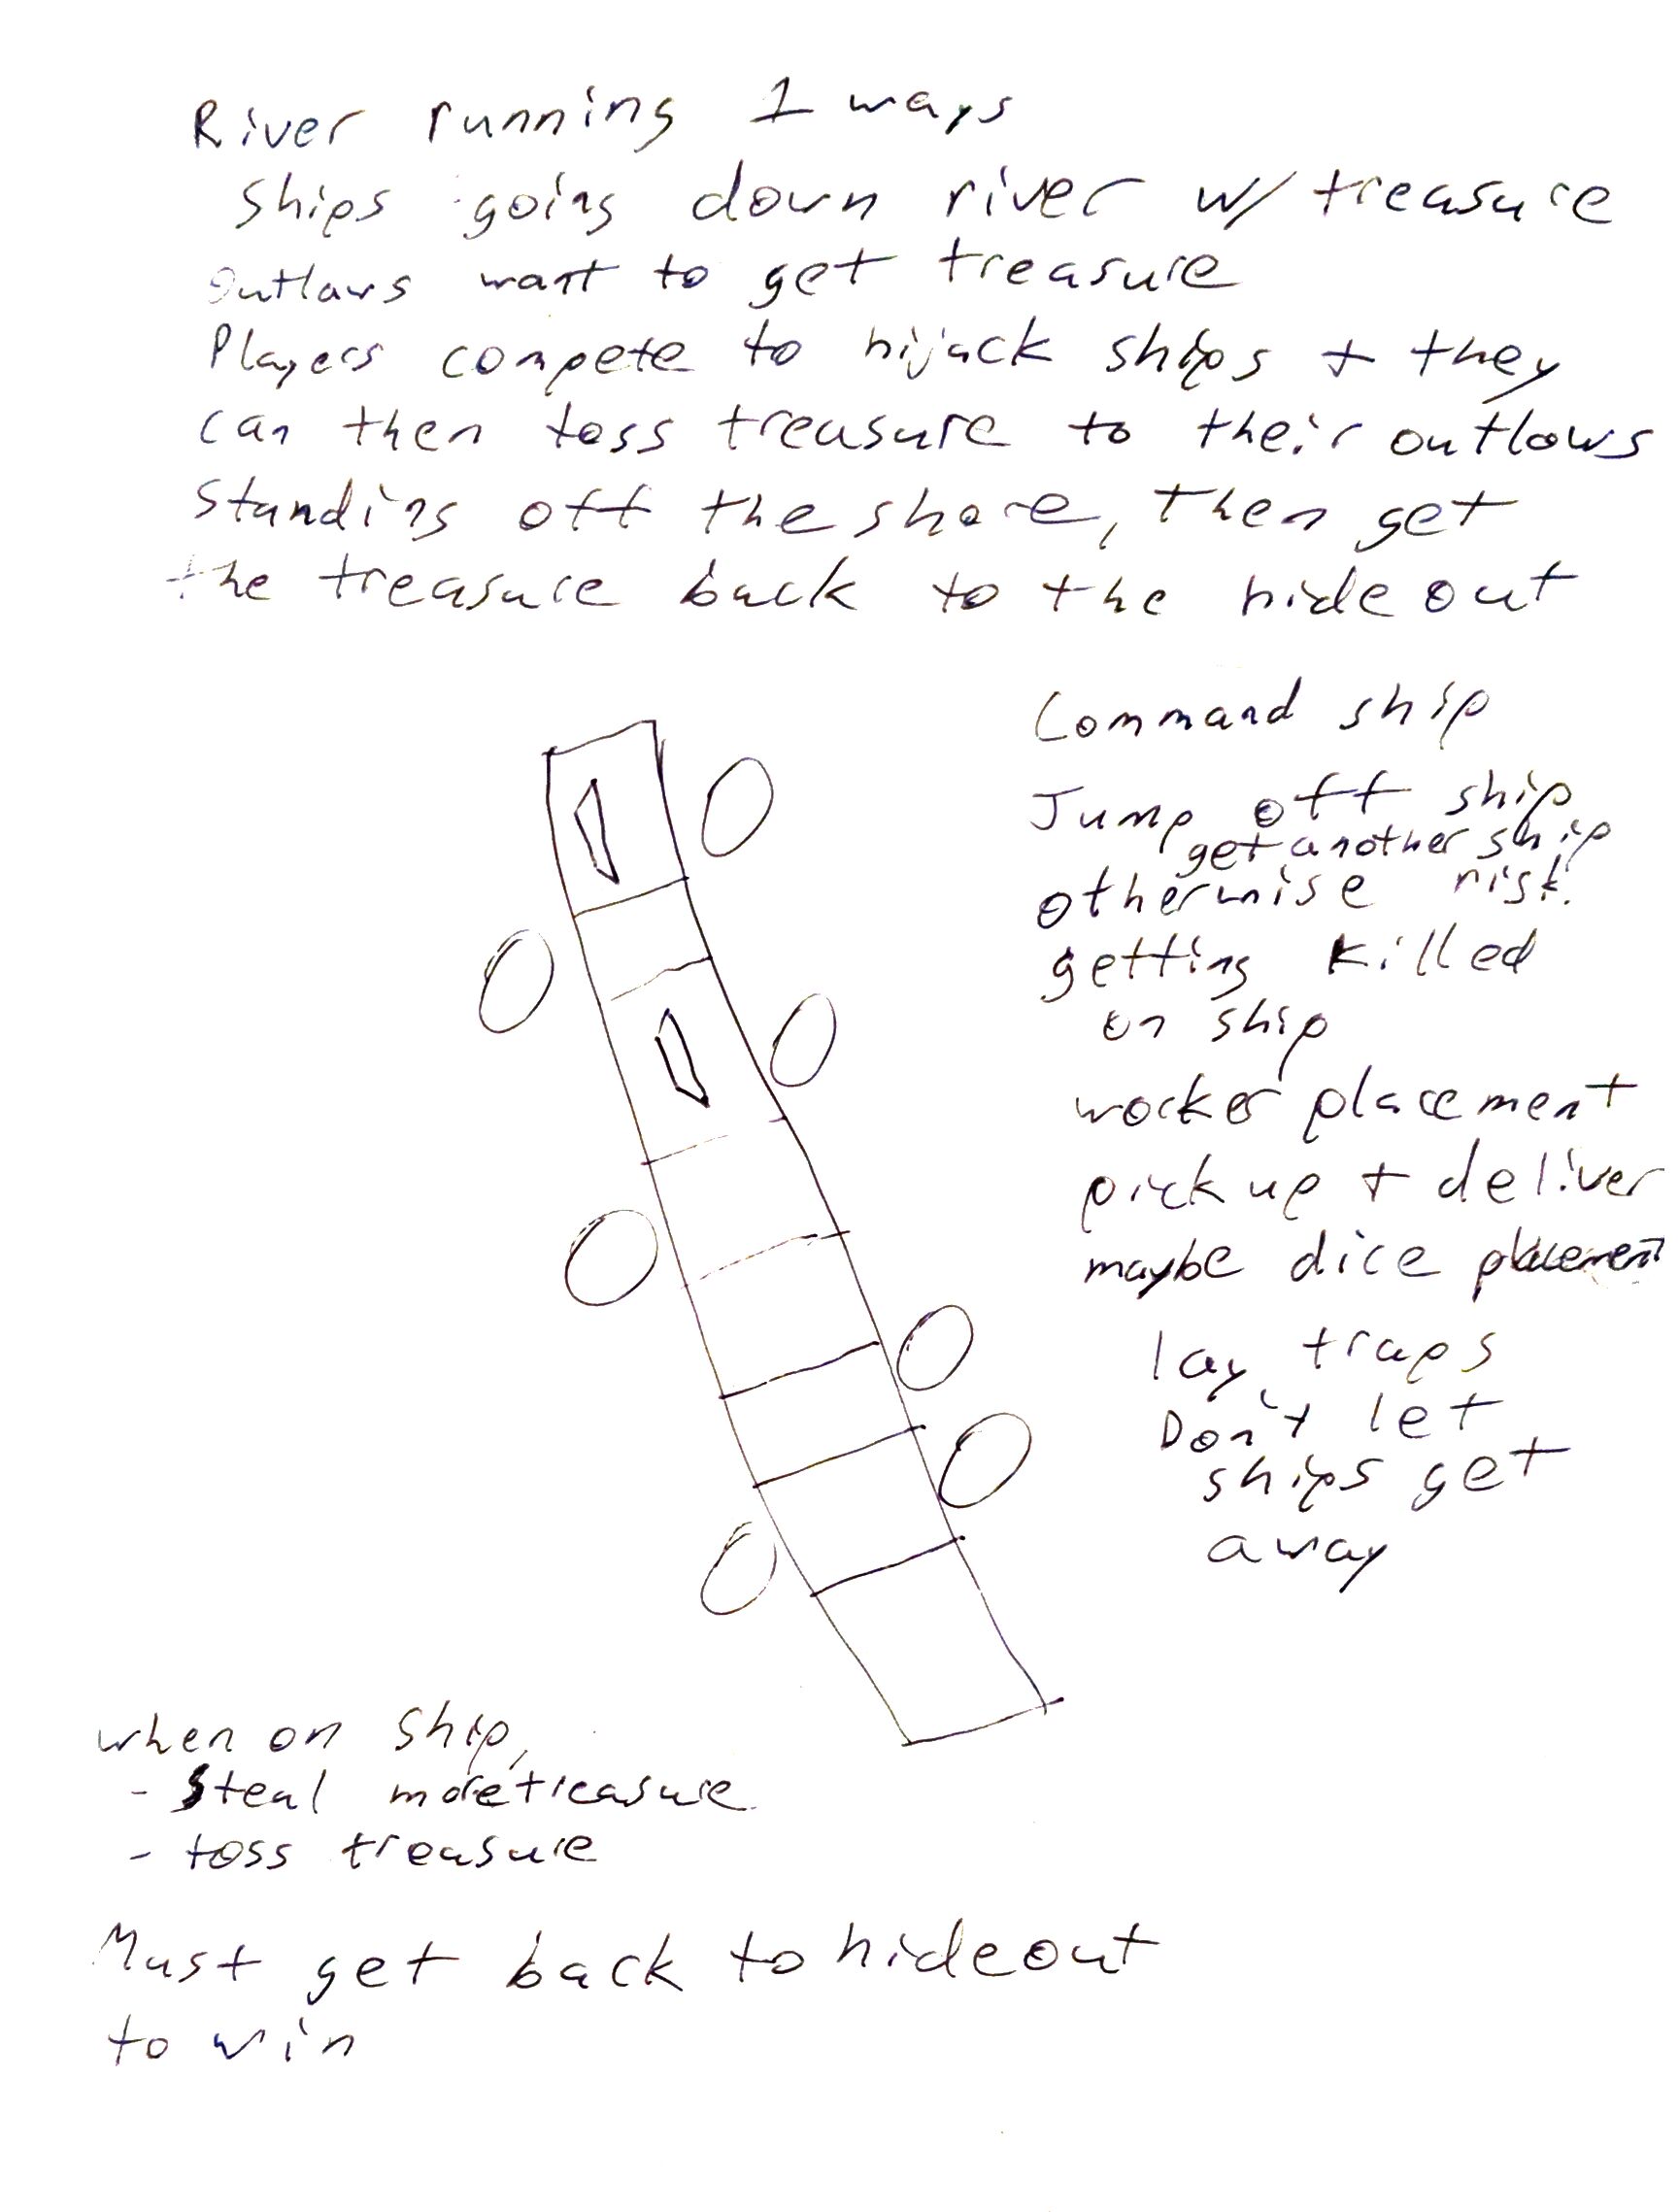 River running 1 ways
ships going down river w/ treasure
outlaws want to get treasure
Players compete to hijack ships + they
can then toss treasure to their outlows
standing off the shore, then get
the treasure back to the hideout
Command ship
Jump off ship
get another ship
otherwise risk
getting killed
on ship
worker placement
pick up + deliver
maybe dice placement
lay traps
Don't let
ships get
away
when on ship,
- steal more treasure
- toss treasure
Must get back to hideout
to win